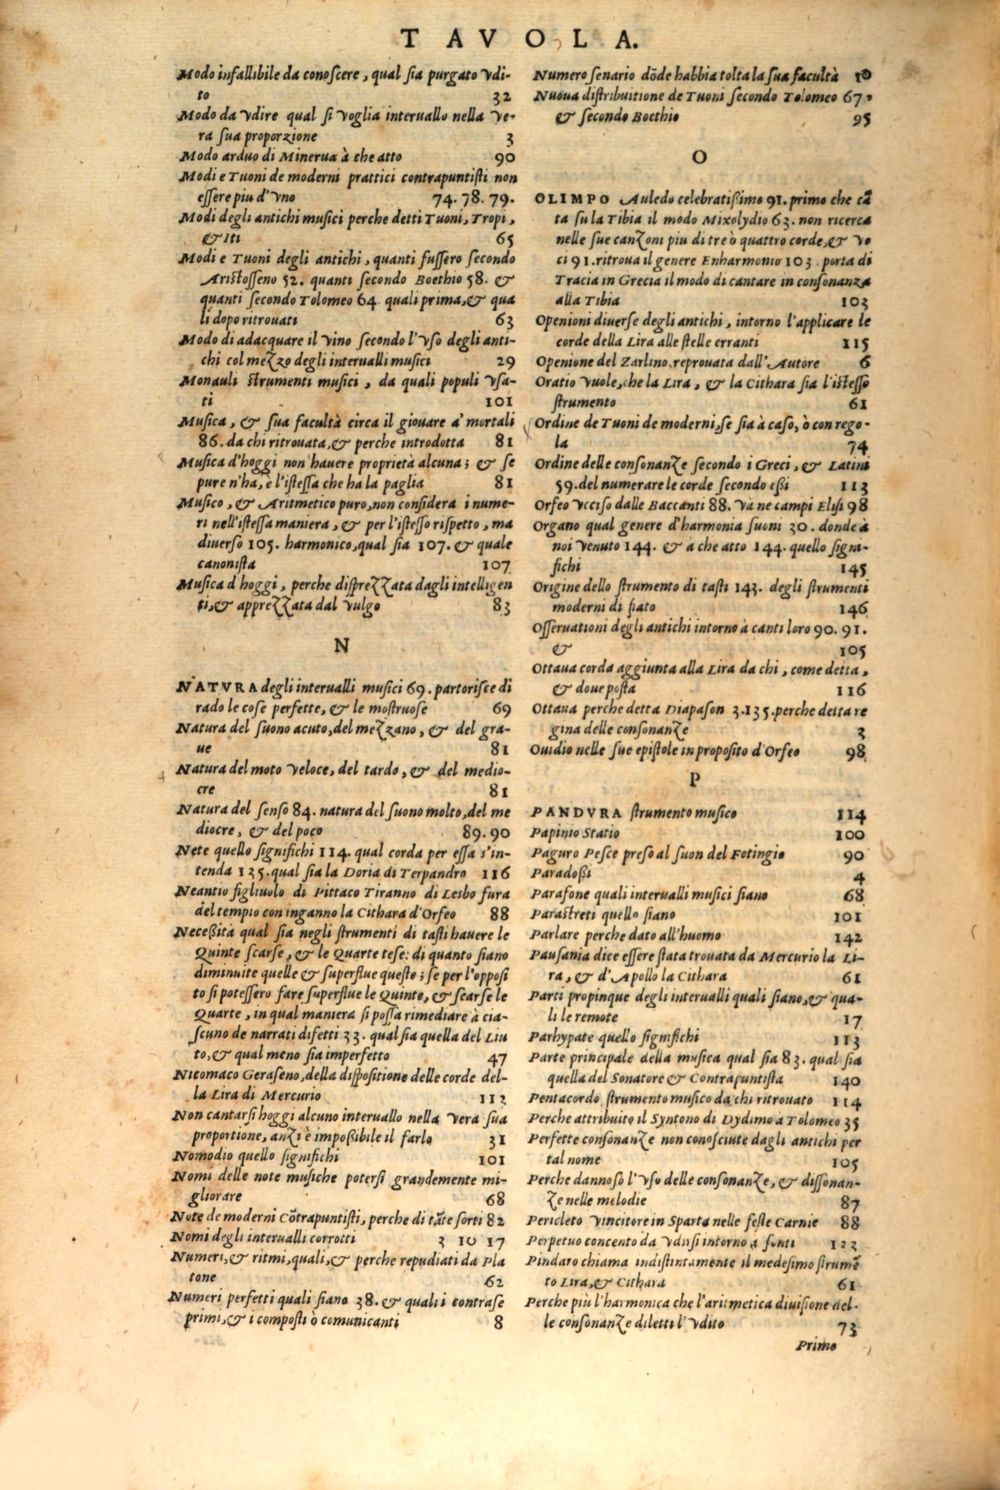 TAVOLA.
Modo infallibile da conoscere, qual sia purgato vdi-
to 32
Modo da vdire qual si voglia interuallo nella ve-
ra sua proporzione 3
Modo arduo di Minerua à che atto 90
Modi e Tuoni de moderni prattici contrapuntisti non
essere piu d'vno 74. 78. 79.
Modi degli antichi musici perche detti Tuoni, Tropi,
& Iti 65
Modi e Tuoni degli antichi, quanti fussero secondo
Aristosseno 52. quanti secondo Boethio 58. &
quanti secondo Tolomeo 64. quali prima, & qua
li dopo ritrouati 63
Modo di adacquare il vino secondo l'vso degli anti-
chi col mezzo degli interualli musici 29
Monauli strumenti musici, da quali populi vsa-
ti 101
Musica, & sua facultà circa il giouare a' mortali
86. da chi ritrouata, & perche introdotta 81
Musica d'hoggi non hauere proprietà alcuna; & se
pure n'ha, è l'istessa che ha la paglia 81
Musico, & Aritmetico puro, non considera i nume-
ri nell'istessa maniera, & per l'istesso rispetto, ma
diuerso 105. harmonico, qual sia 107. & quale
canonista 107
Musica d hoggi, perche disprezzata dagli intelligen
ti, & apprezzata dal vulgo 83
N
NATVRA degli interualli musici 69. partorisce di
rado le cose perfette, & le mostruose 69
Natura del suono acuto, del mezzano, & del gra-
ue 81
Natura del moto veloce, del tardo, & del medio-
cre 81
Natura del senso 84. natura del suono molto, del me
diocre, & del poco 89. 90
Nete quello significhi 114. qual corda per essa s'in-
tenda 135. qual sia la Doria di Terpandro 116
Neantio figliuolo di Pittaco Tiranno di Lesbo fura
del tempio con inganno la Cithara d'Orfeo 88
Necessità qual sia negli strumenti di tasti hauere le
Quinte scarse, & le Quarte tese: di quanto siano
diminuite quelle & superflue queste; se per l'opposi
to si potessero fare superflue le Quinte, & scarse le
Quarte, in qual maniera si possa rimediare à cia-
scuno de narrati difetti 33. qual sia quella del Liu
to, & qual meno sia imperfetto 47
Nicomaco Geraseno, della dispositione delle corde del-
la Lira di Mercurio 113
Non cantarsi hoggi alcuno interuallo nella vera sua
proportione, anzi è impossibile il farlo 31
Nomodio quello significhi 101
Nomi delle note musiche potersi grandemente mi-
gliorare 68
Note de moderni Cōtrapuntisti, perche di tāte sorti 82
Nomi degli interualli corrotti 3 10 17
Numeri, & ritmi, quali, & perche repudiati da Pla
tone 62
Numeri perfetti quali siano 38. & quali i contrase
primi, & i composti ò comunicanti 8
Numero senario dōde habbia tolta la sua facultà 10
Nuoua distribuitione de Tuoni secondo Tolomeo 67.
& secondo Boethio 95
O
OLIMPO Auledo celebratissimo 91. primo che cā
ta su la Tibia il modo Mixolydio 63. non ricerca
nelle sue canzoni piu di tre ò quattro corde, & vo
ci 91. ritroua il genere Enharmonio 103. porta di
Tracia in Grecia il modo di cantare in consonanza
alla Tibia 103
Openioni diuerse degli antichi, intorno l'applicare le
corde della Lira alle stelle erranti 115
Openione del Zarlino, reprouata dall'Autore 6
Oratio vuole, che la Lira, & la Cithara sia l'istesso
strumento 61
Ordine de Tuoni de moderni, se sia à caso, ò con rego-
la 74
Ordine delle consonanze secondo i Greci, & Latini
59. del numerare le corde secondo essi 113
Orfeo vcciso dalle Baccanti 88. va ne campi Elisi 98
Organo qual genere d'harmonia suoni 30. donde à
noi venuto 144. & a che atto 144. quello signi-
fichi 145
Origine dello strumento di tasti 143. degli strumenti
moderni di fiato 146
Osseruationi degli antichi intorno à canti loro 90. 91.
& 105
Ottaua corda aggiunta alla Lira da chi, come detta,
& doue posta 116
Ottaua perche detta Diapason 3. 135. perche detta re
gina delle consonanze 3
Ouidio nelle sue epistole in proposito d'Orfeo 98
P
PANDVRA strumento musico 114
Papinio Statio 100
Paguro Pesce preso al suon del Fotingio 90
Paradossi 4
Parafone quali interualli musici siano 68
Parastreti quello siano 101
Parlare perche dato all'huomo 142
Pausania dice essere stata trouata da Mercurio la Li-
ra, & d'Apollo la Cithara 61
Parti propinque degli interualli quali siano, & qua-
li le remote 17
Parhypate quello significhi 113
Parte principale della musica qual sia 83. qual sia
quella del Sonatore & Contrapuntista 140
Pentacordo strumento musico da chi ritrouato 114
Perche attribuito il Syntono di Dydimo a Tolomeo 35
Perfette consonanze non conosciute dagli antichi per
tal nome 105
Perche dannoso l'vso delle consonanze, & dissonan-
ze nelle melodie 87
Pericleto vincitore in Sparta nelle feste Carnie 88
Perpetuo concento da vdirsi intorno a fonti 123
Pindaro chiama indistintamente il medesimo strumē
to Lira, & Cithara 61
Perche più l'harmonica che l'aritmetica diuisione del-
le consonanze diletti l'vdito 73
Primo